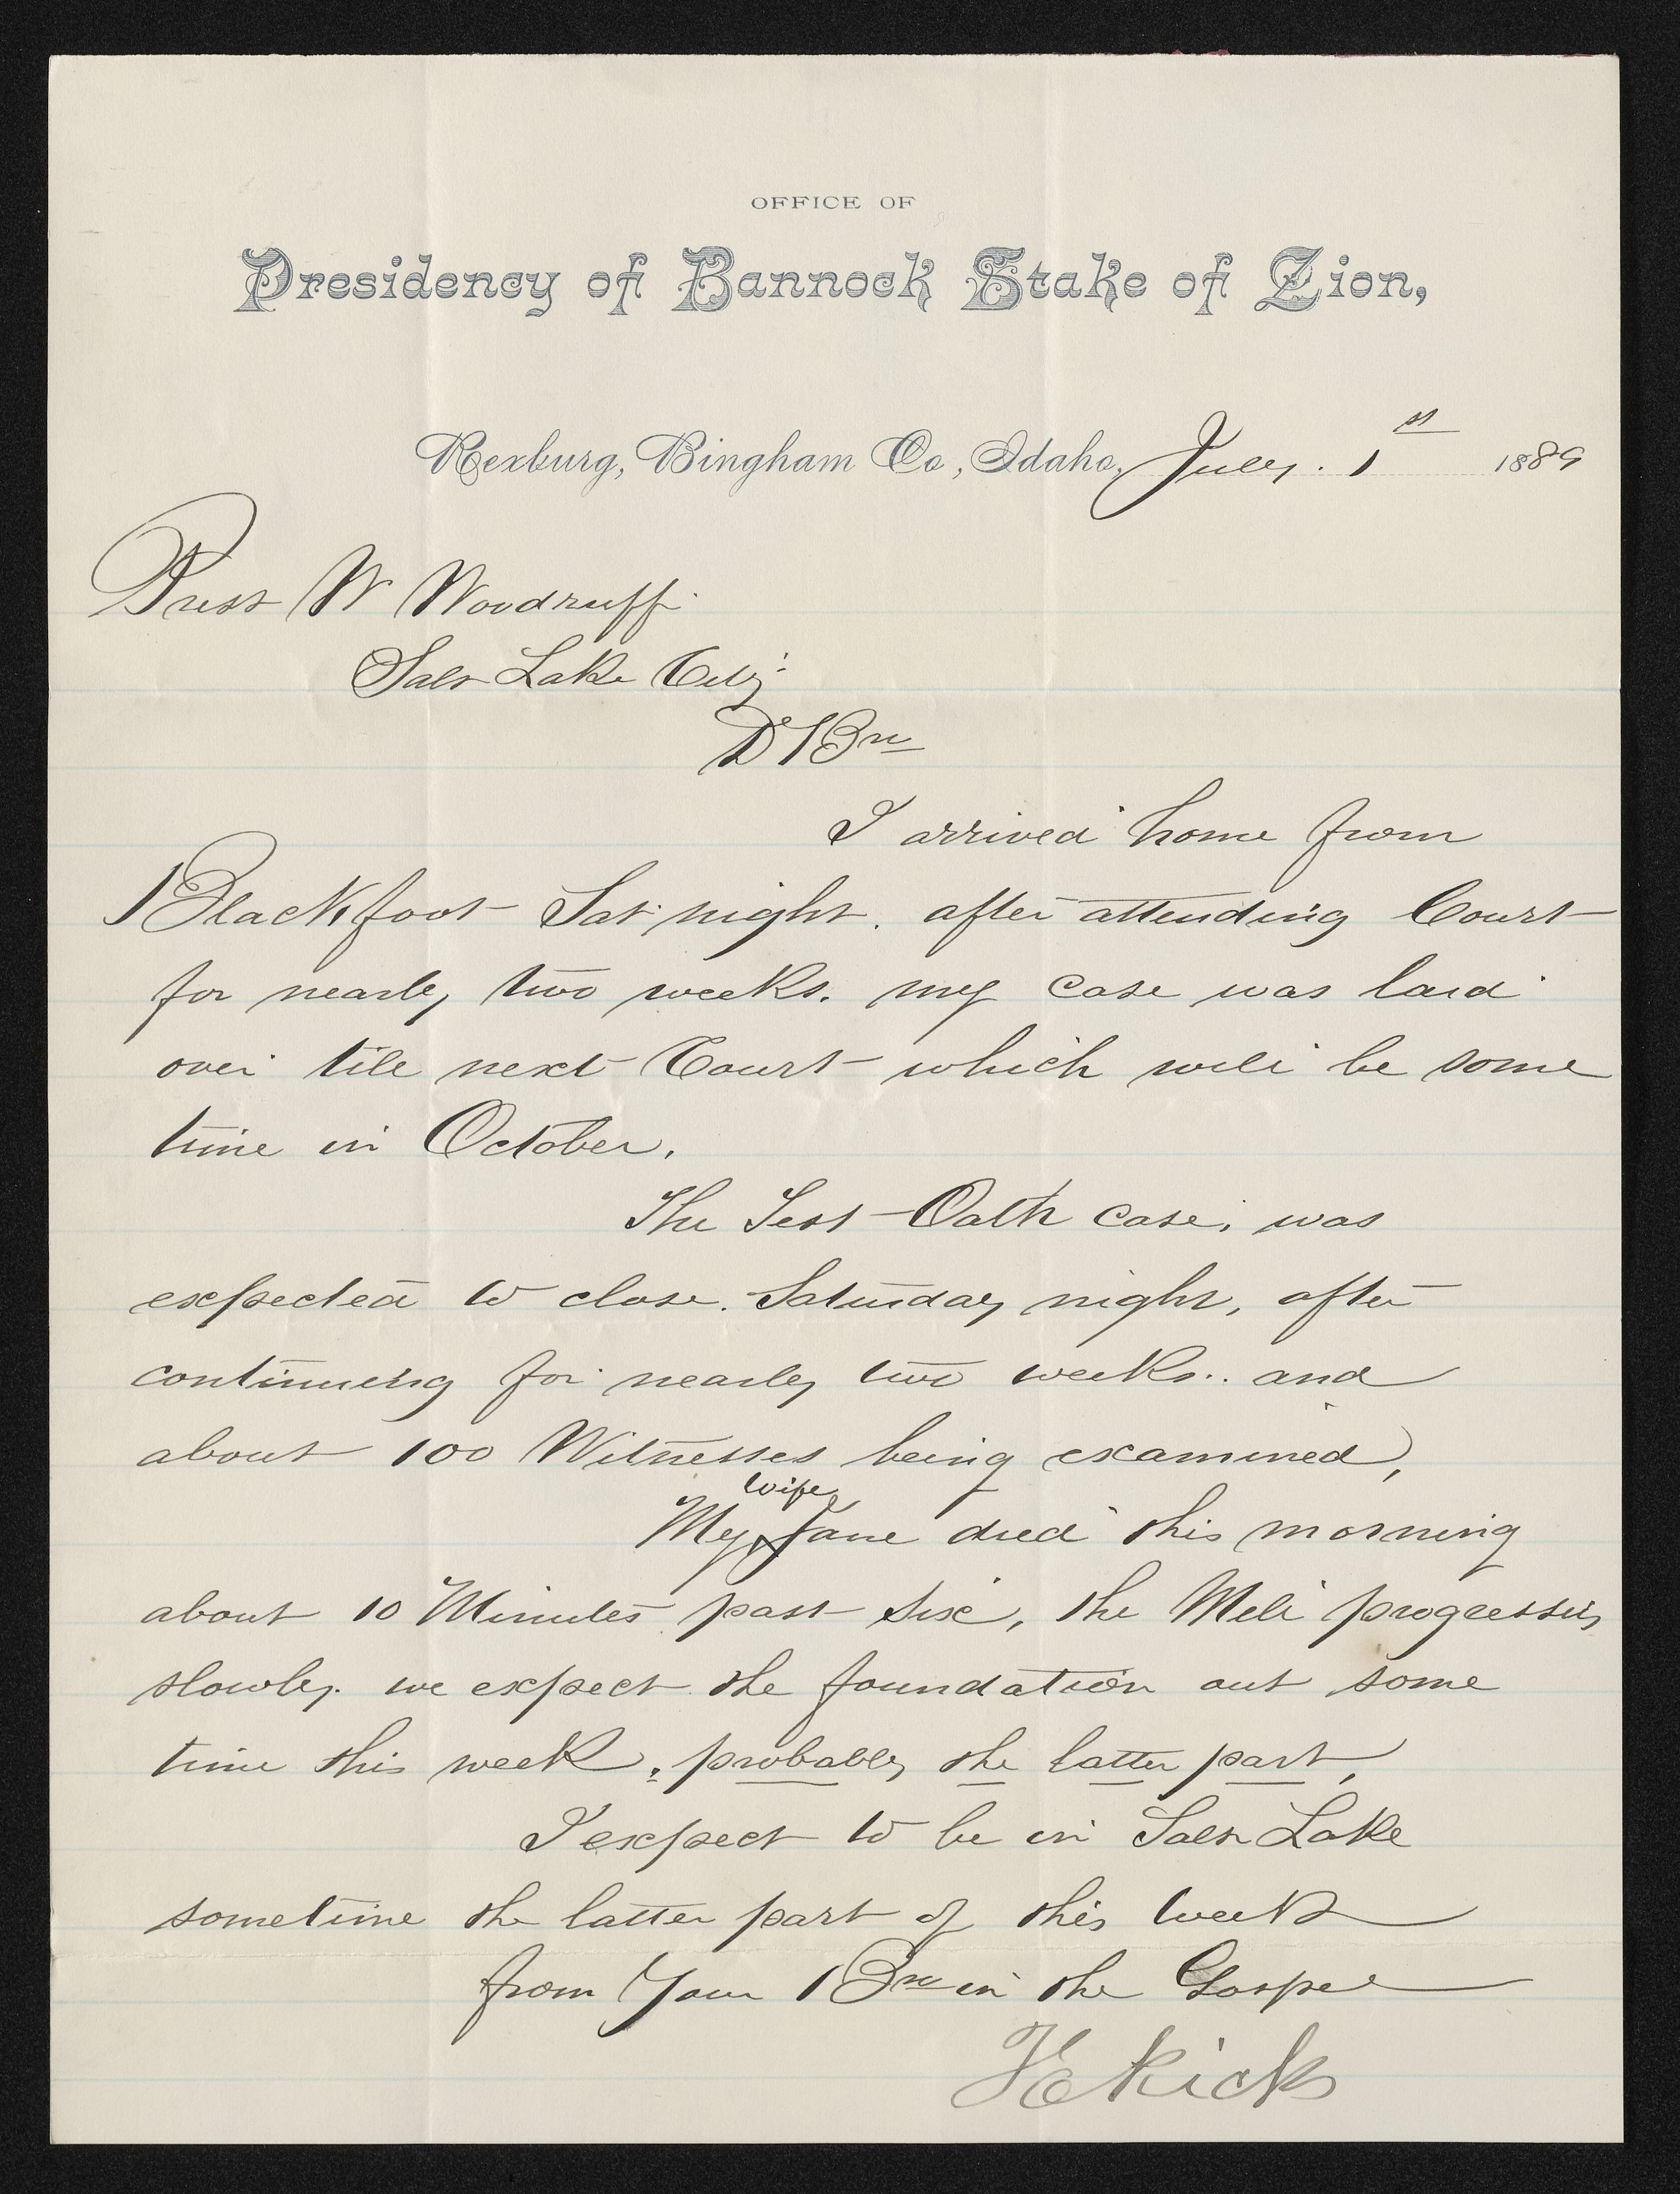 OFFICE OF
Presidency of Bannock Stake of Zion,
Rexburg, Bingham Co., Idaho, July. 1st 1889
Prest W Woodruff.
Salt Lake City
D Bro
I arrived home from
Blackfoot Sat night. after attending Court
for nearly two weeks. my case was laid
over till next Court which will be some
time in October.
The Test-Oath case, was
expected to close. Saturday night, after
continueing for nearly two weeks.. and
about 100 Witnesses being examined,
My wife Jane died this morning
about 10 Minutes past six, the Mill progressing
slowly. we expect the foundation out some
time this week, probably the latter part,
I expect to be in Salt Lake
sometime the latter part of this week
from Your Bro in the Gospel
T E Ricks